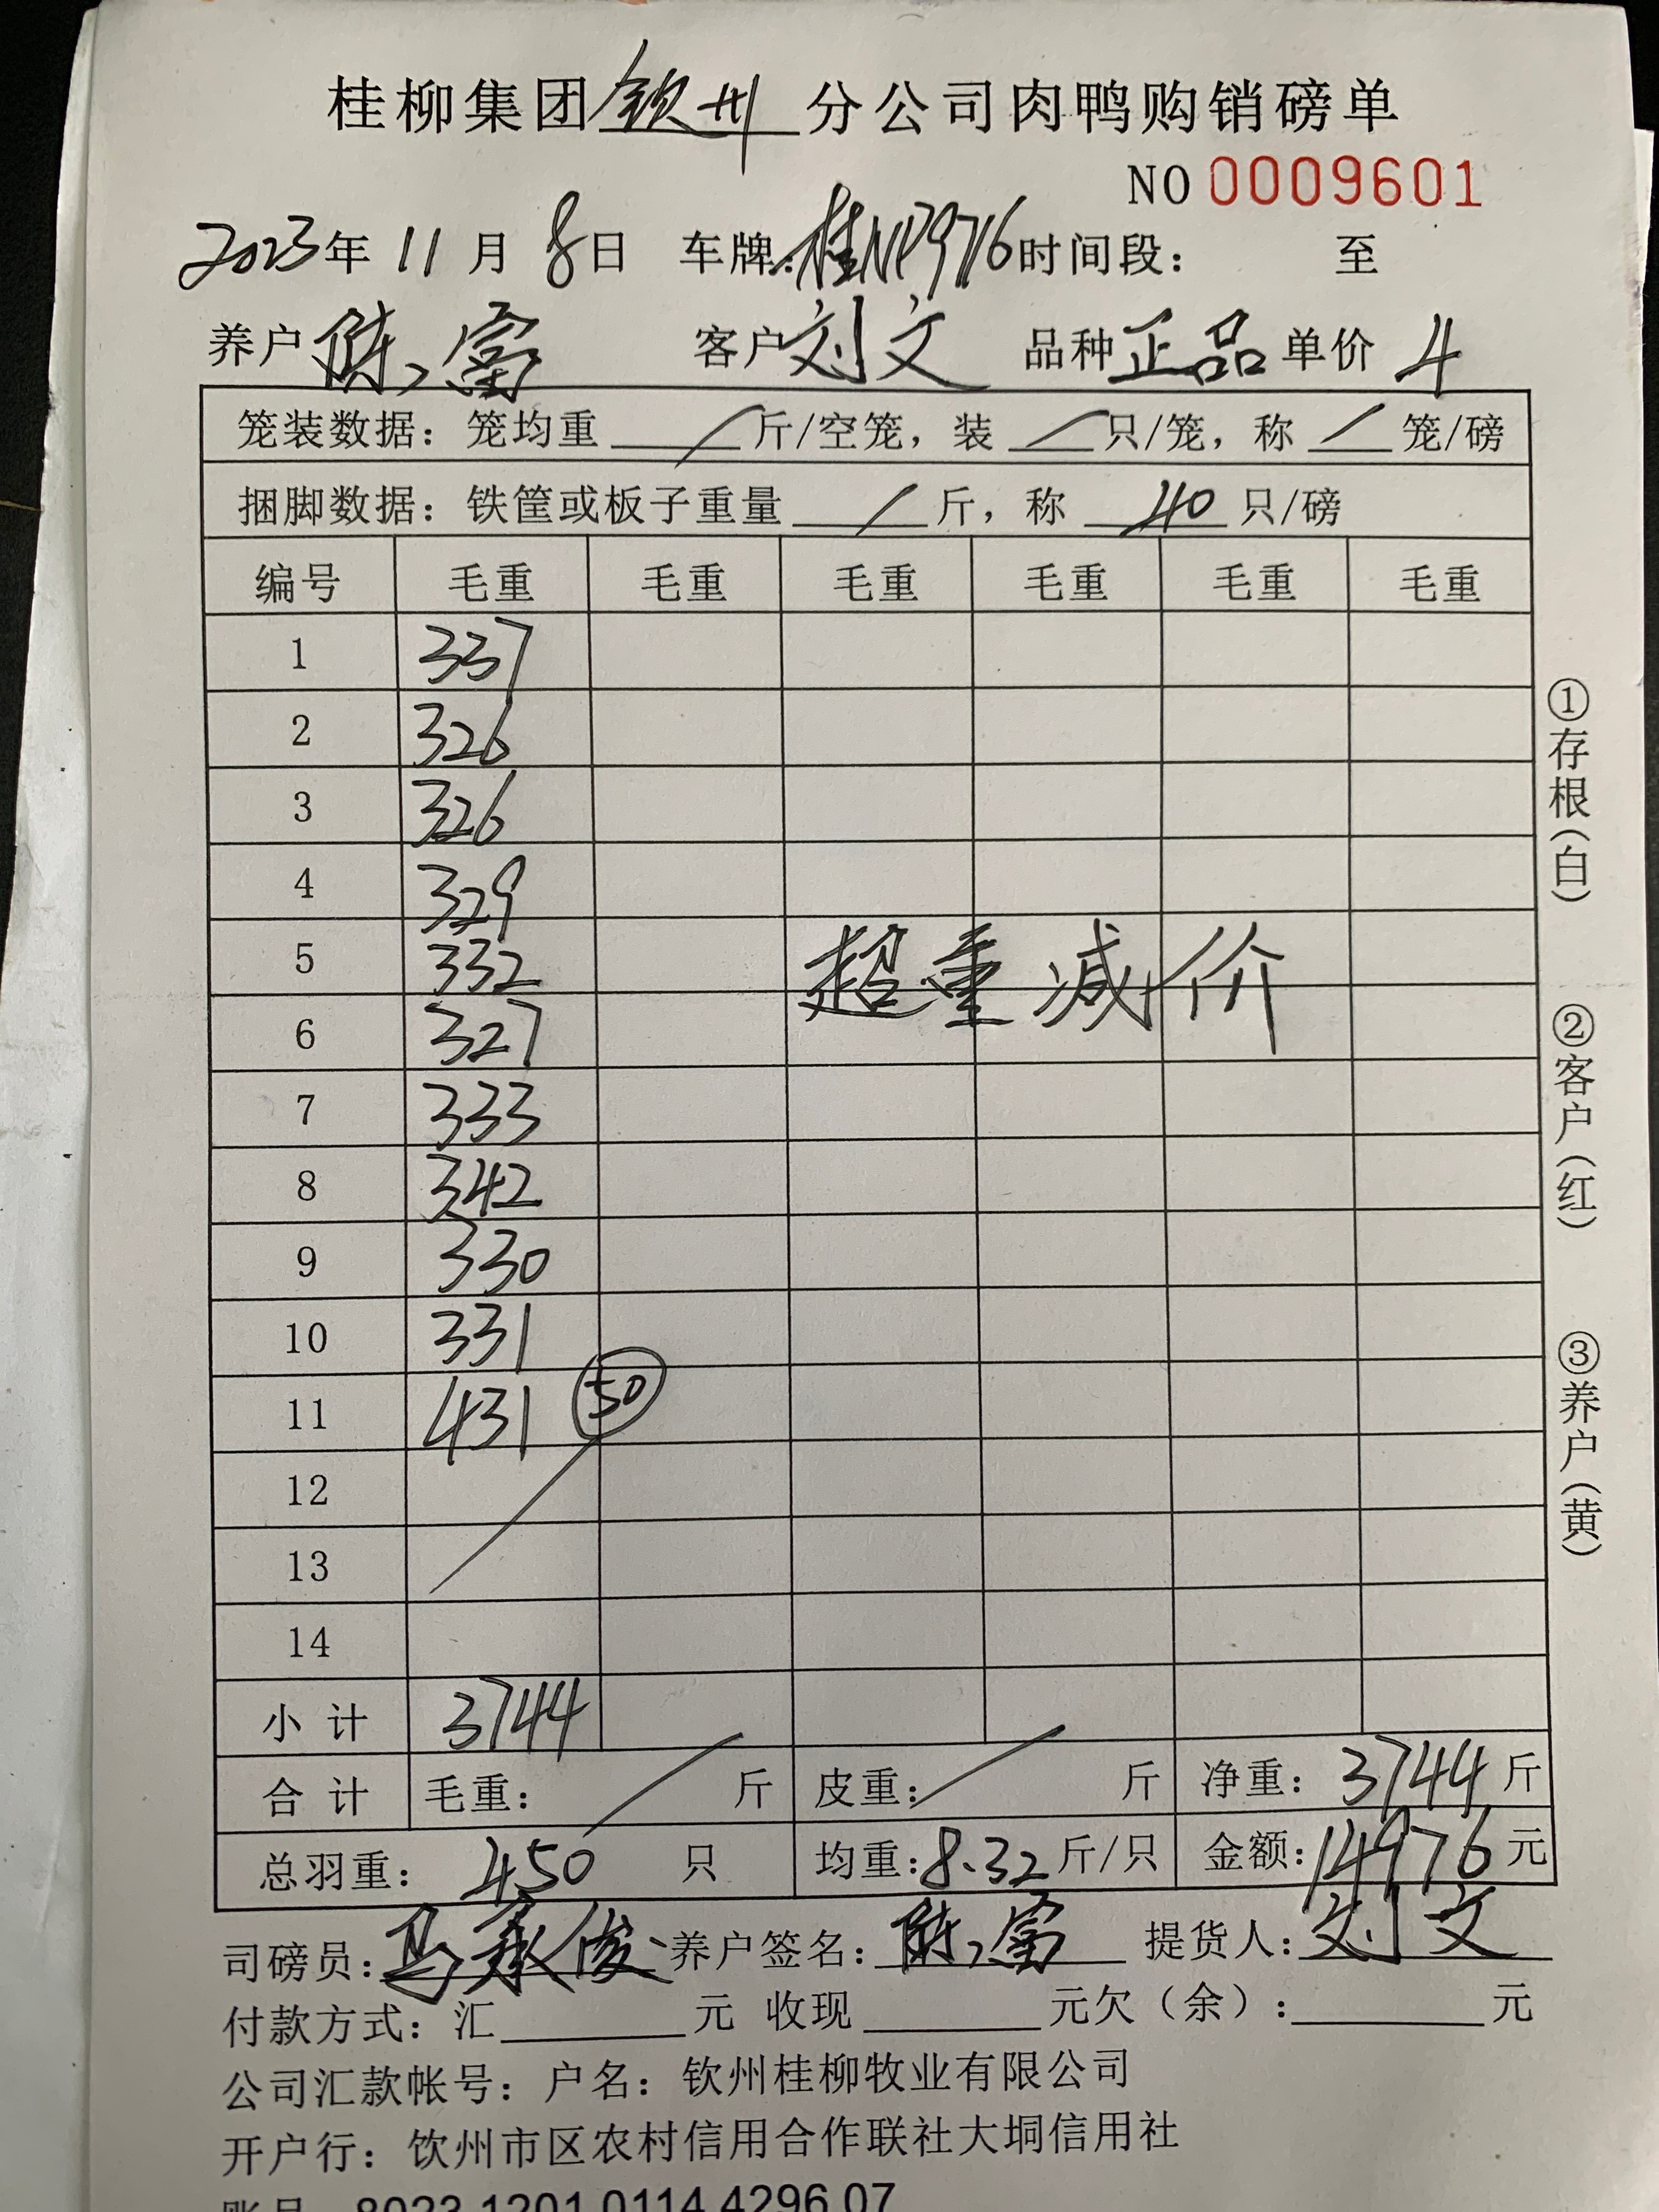 桂柳集团钦州分公司肉鸭购销磅单
NO 0009601
2023年 11月 8日 车牌:桂NP9776时间段: 至
养户 陈 富 客户 刘文 品种 正品 单价 4
笼装数据: 笼均重 / 斤/空笼, 装 / 只/笼, 称 / 笼/磅
捆脚数据: 铁筐或板子重量 / 斤, 称 40 只/磅
编号 毛重 毛重 毛重 毛重 毛重 毛重
1 337
2 326
3 326
4 329
5 332 超重减价
6 327
7 333
8 342
9 330
10 331
11 431 50
12
13
14
小计 3744
合计 毛重: / 斤 皮重: / 斤 净重: 3744 斤
总羽重: 450 只 均重:8.32 斤/只 金额:14976 元
司磅员:马承俊 养户签名: 陈 富 提货人: 刘文
付款方式: 汇 元 收现 元欠(余): 元
公司汇款帐号: 户名: 钦州桂柳牧业有限公司
开户行: 钦州市区农村信用合作联社大垌信用社
账号 8023 1201 0114 4296 07
①存根(白)
②客户(红)
③养户(黄)